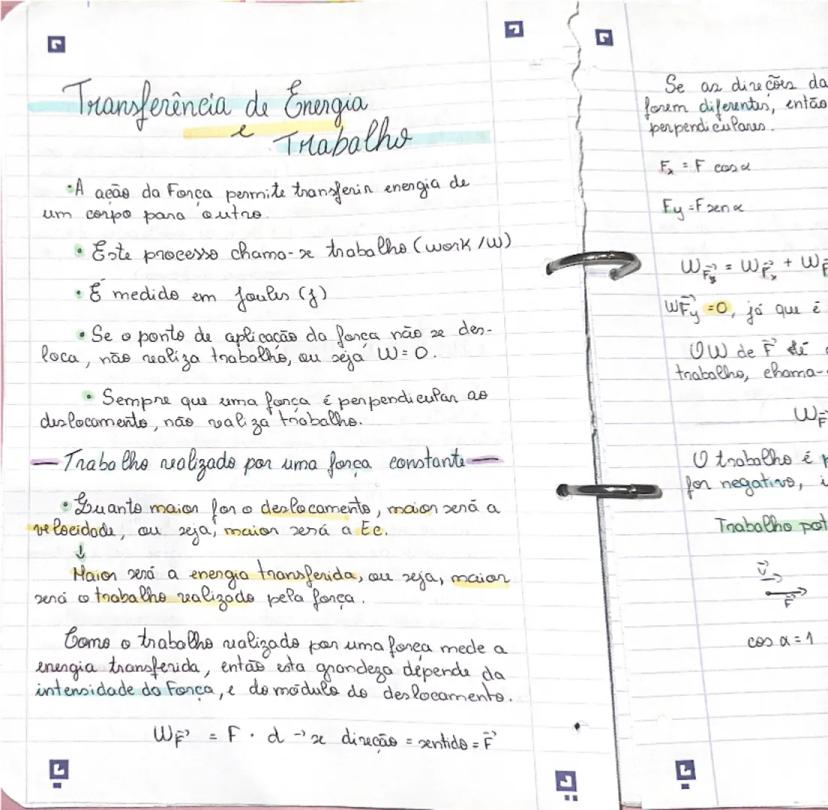 Transferência de Energia
e
Trabalho
• A ação da Força permite transferir energia de
um corpo para outro.
• Este processo chama-se trabalho (work/W)
• É medido em Joules (J)
• Se o ponto de aplicação da força não se des-
loca, não realiza trabalho, ou seja W = 0.
• Sempre que uma força é perpendicular ao
deslocamento, não realiza trabalho.
— Trabalho realizado por uma força constante —
• Quanto maior for o deslocamento, maior será a
velocidade, ou seja, maior será a Ec.
↓
Maior será a energia transferida, ou seja, maior
será o trabalho realizado pela força.
Como o trabalho realizado por uma força mede a
energia transferida, então esta grandeza depende da
intensidade da Força, e do módulo do deslocamento.
W_F⃗ = F · d → se direção = sentido = F⃗
Se as direções da
forem diferentes, então
perpendiculares.
Fx = F cos α
Fy = F sen α
W_F⃗ = W_F⃗x + W_F⃗
W_F⃗y = 0, já que é
O W de F⃗
trabalho, chama-
W_F⃗
O trabalho é
for negativo,
Trabalho pot
v⃗
F⃗
cos α = 1